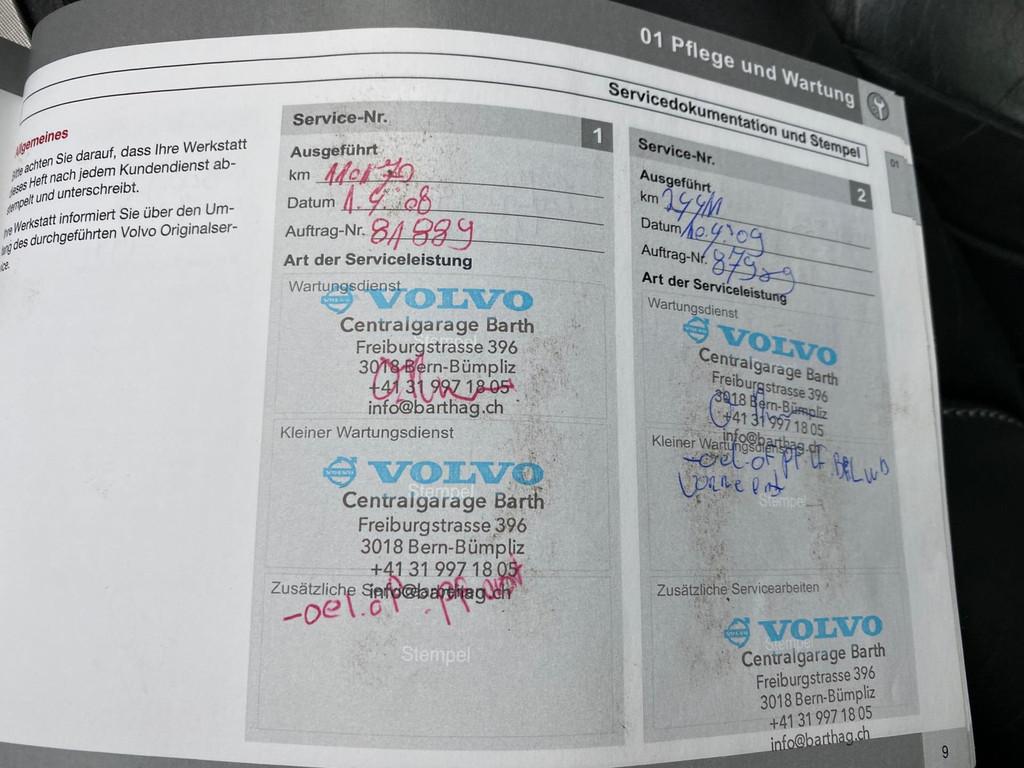 01 Pflege und Wartung
Servicedokumentation und Stempel
01
Allgemeines
achten Sie darauf, dass Ihre Werkstatt
dieses Heft nach jedem Kundendienst ab-
stempelt und unterschreibt.
Ihre Werkstatt informiert Sie über den Um-
fang des durchgeführten Volvo Originalser-
vice.
Service-Nr. 1
Ausgeführt
km
Datum 1.4.08
Auftrag-Nr. 81889
Art der Serviceleistung
Wartungsdienst
VOLVO
Centralgarage Barth
Freiburgstrasse 396
3018 Bern-Bümpliz
+41 31 997 18 05
info@barthag.ch
Kleiner Wartungsdienst
VOLVO
Stempel
Centralgarage Barth
Freiburgstrasse 396
3018 Bern-Bümpliz
+41 31 997 18 05
Zusätzliche Servicearbeiten
info@barthag.ch
-oel.of.pf
Stempel
Service-Nr. 2
Ausgeführt
km
Datum
Auftrag-Nr. 87929
Art der Serviceleistung
Wartungsdienst
VOLVO
Centralgarage Barth
Freiburgstrasse 396
3018 Bern-Bümpliz
+41 31 997 18 05
info@barthag.ch
Kleiner Wartungsdienst
-oel.of.pf
Stempel
Zusätzliche Servicearbeiten
VOLVO
Stempel
Centralgarage Barth
Freiburgstrasse 396
3018 Bern-Bümpliz
+41 31 997 18 05
info@barthag.ch
9